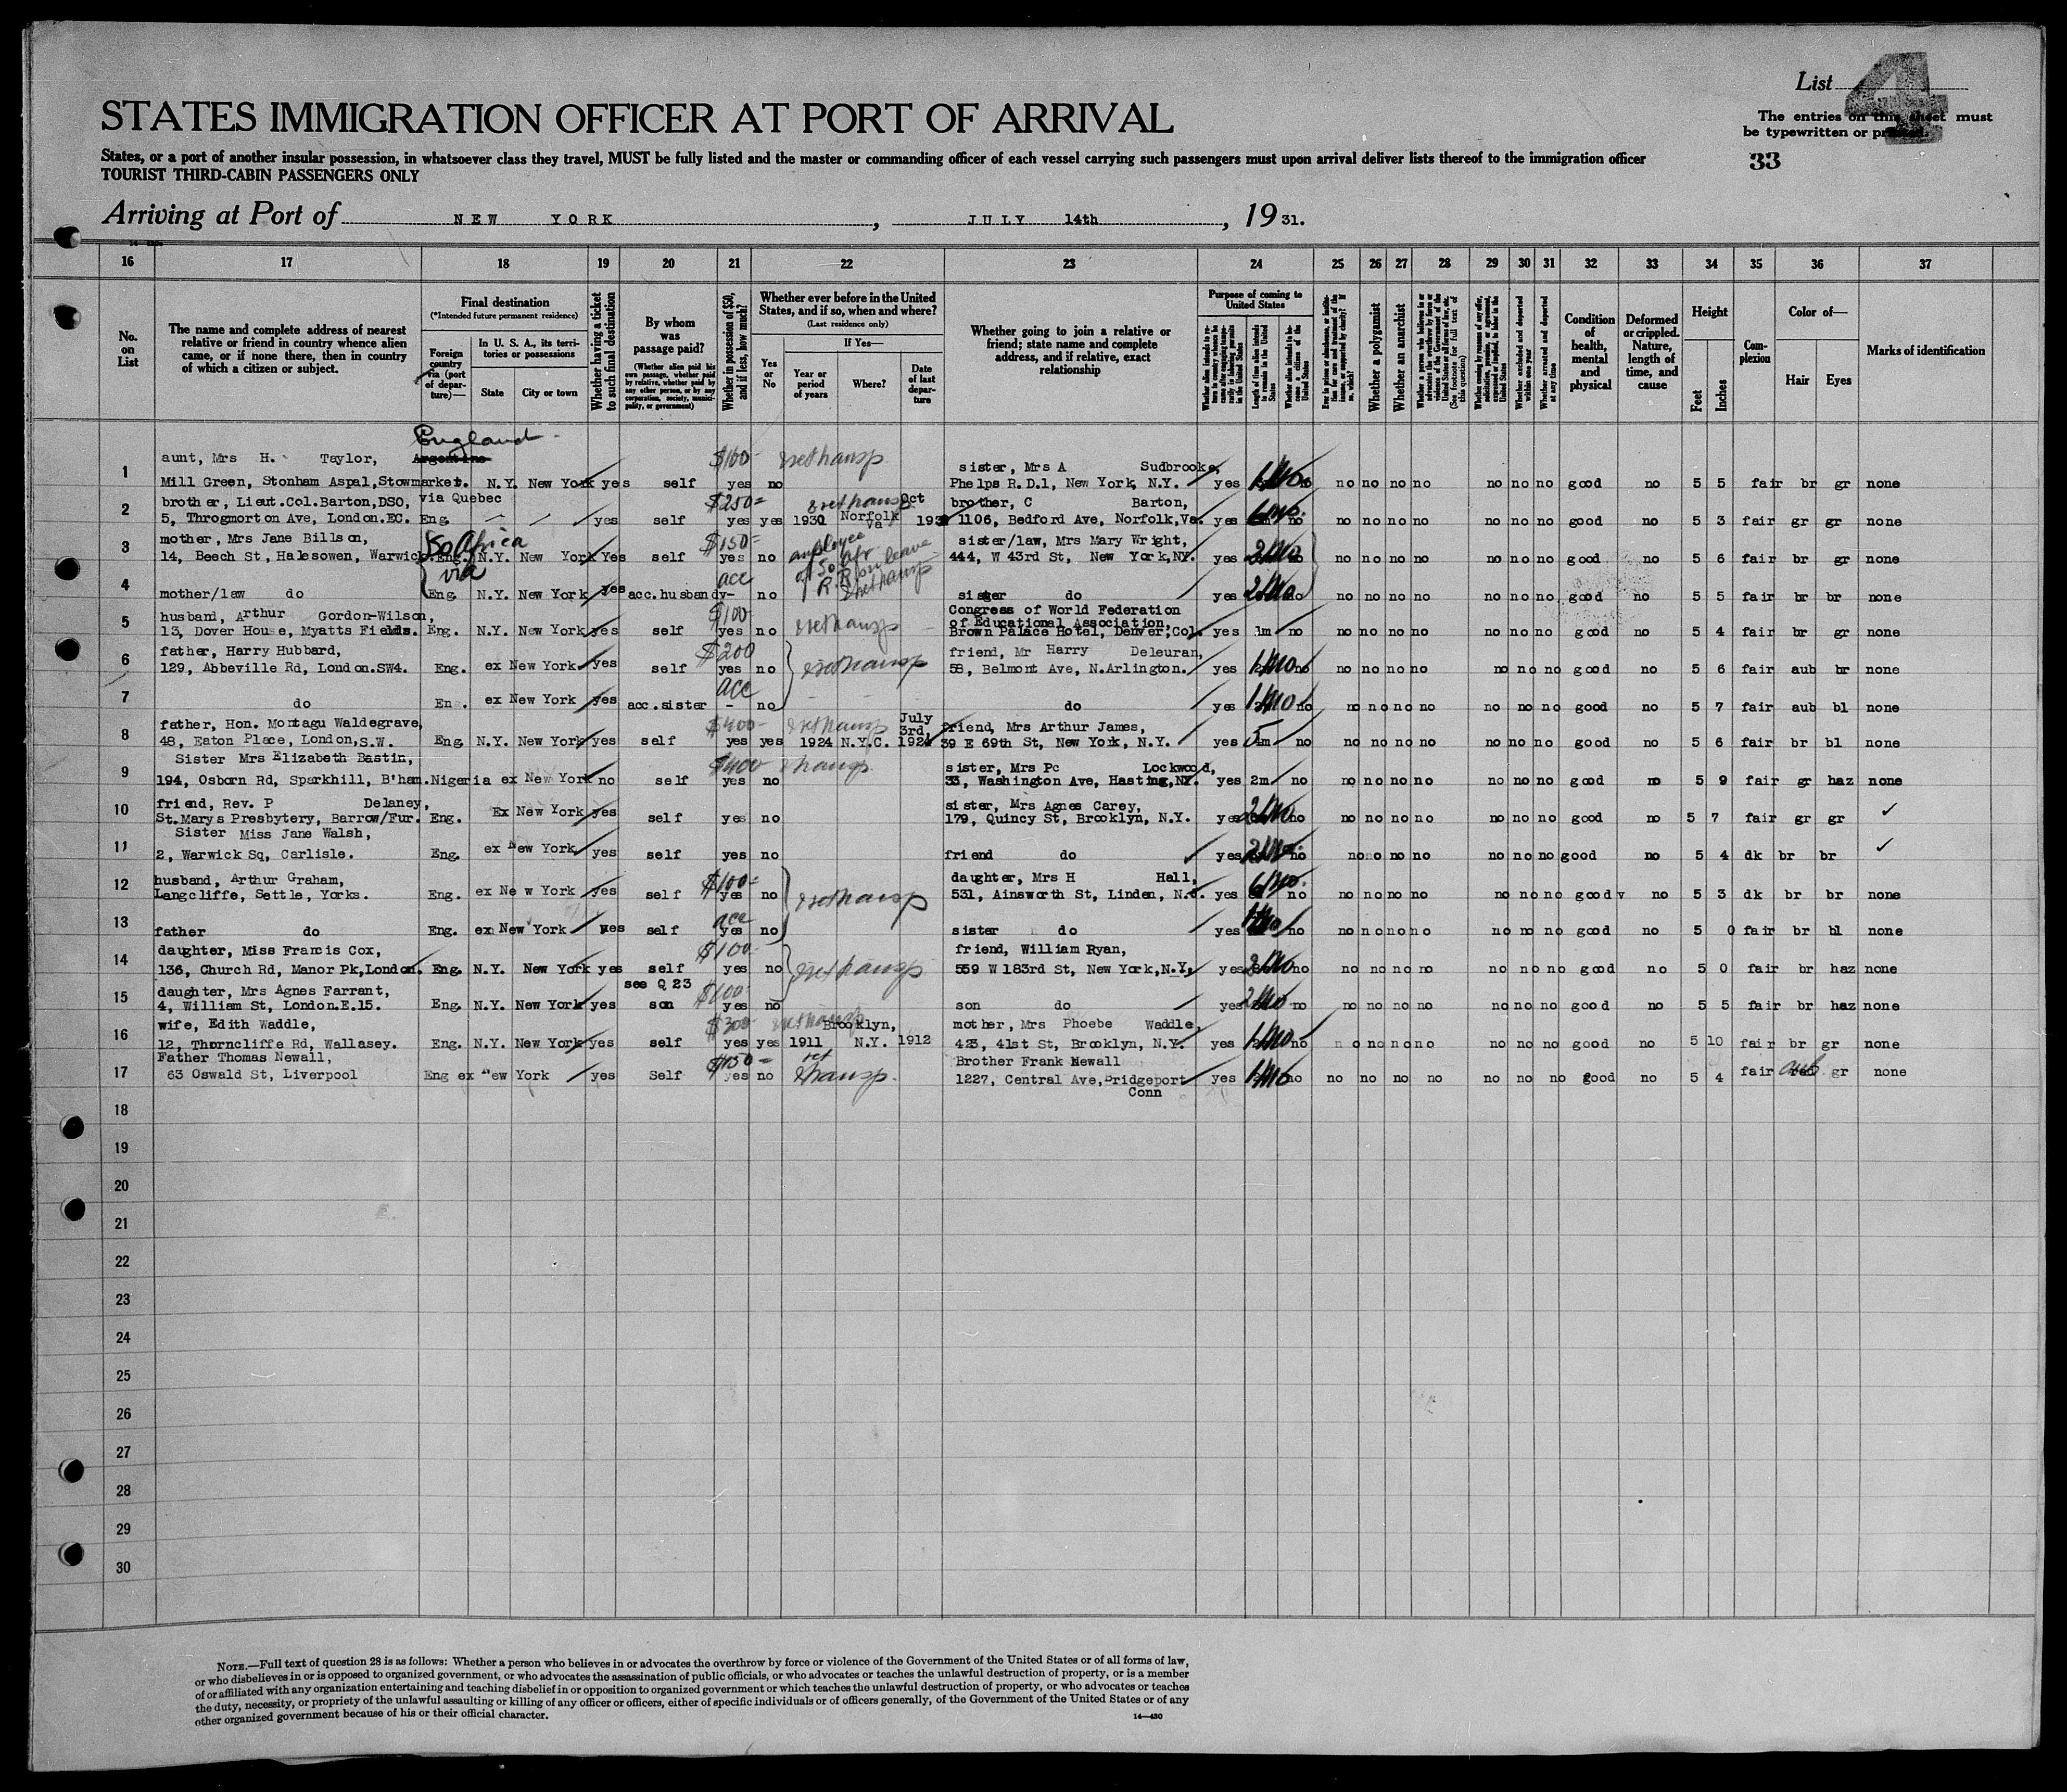 List 4
STATES IMMIGRATION OFFICER AT PORT OF ARRIVAL
The entries on this sheet must
be typewritten or printed.
States, or a port of another insular possession, in whatsoever class they travel, MUST be fully listed and the master or commanding officer of each vessel carrying such passengers must upon arrival deliver lists thereof to the immigration officer
33
TOURIST THIRD-CABIN PASSENGERS ONLY
Arriving at Port of NEW YORK, JULY 14th, 1931.
16 17 18 19 20 21 22 23 24 25 26 27 28 29 30 31 32 33 34 35 36 37
No. on List
The name and complete address of nearest relative or friend in country whence alien came, or if none there, then in country of which a citizen or subject.
Final destination
(*Intended future permanent residence)
Foreign country via (port of departure)—
In U. S. A., its territories or possessions
State
City or town
Whether having a ticket to such final destination
By whom was passage paid?
(Whether alien paid his own passage, whether paid by relative, whether paid by any other person, or by any corporation, society, municipality, or government)
Whether in possession of $50, and if less, how much?
Whether ever before in the United States, and if so, when and where?
(Last residence only)
Yes or No
If Yes—
Year or period of years
Where?
Date of last departure
Whether going to join a relative or friend; state name and complete address, and if relative, exact relationship
Purpose of coming to United States
Length of time alien intends to remain in the United States
Whether alien intends to become a citizen of the United States
Whether a polygamist
Whether an anarchist
(See footnote for full text of this question)
Whether excluded and deported within one year
Whether arrested and deported at any time
Condition of health, mental and physical
Deformed or crippled. Nature, length of time, and cause
Height
Feet
Inches
Complexion
Color of—
Hair
Eyes
Marks of identification
England
1 aunt, Mrs H. Taylor, Argentine $100
Mill Green, Stonham Aspal, Stowmarket. N.Y. New York yes self yes no sister, Mrs A Sudbrooke, Phelps R.D.1, New York, N.Y. yes 1 Mo no no no no no no no no good no 5 5 fair br gr none
2 brother, Lieut.Col.Barton,DSO, via Quebec $250 Oct brother, C Barton,
5, Throgmorton Ave, London.EC. Eng. yes self yes yes 1930 Norfolk Va 1106, Bedford Ave, Norfolk,Va. yes 6 Mo. no no no no no no no no good no 5 3 fair gr gr none
3 mother, Mrs Jane Billson, So Africa via $150 employee of So Afr R.R. on leave sister/law, Mrs Mary Wright,
14, Beech St, Halesowen, Warwick. Eng. N.Y. New York Yes self yes no 444, W 43rd St, New York,NY. yes 2 Mo no no no no no no no no good no 5 6 fair br gr none
4 mother/law do Eng. N.Y. New York yes acc.husband acc no sister do yes 2 Mo no no no no no no no no good no 5 5 fair br br none
5 husband, Arthur Gordon-Wilson, $100 Congress of World Federation of Educational Association,
13, Dover House, Myatts Fields. Eng. N.Y. New York yes self yes no Brown Palace Hotel, Denver,Col. yes 1m no no no no no no no no good no 5 4 fair br gr none
6 father, Harry Hubbard, $200 friend, Mr Harry Deleuran,
129, Abbeville Rd, London.SW4. Eng. ex New York yes self yes no 58, Belmont Ave, N.Arlington. yes 1 Mo no no no no no no no no good no 5 6 fair aub br none
7 do En. ex New York yes acc.sister acc - no do yes 1 Mo no no no no no no no no good no 5 7 fair aub bl none
8 father, Hon. Montagu Waldegrave, $400 July 3rd, friend, Mrs Arthur James,
48, Eaton Place, London,S.W. Eng. N.Y. New York yes self yes yes 1924 N.Y.C. 1924 39 E 69th St, New York, N.Y. yes 5m no no no no no no no no good no 5 6 fair br bl none
9 Sister Mrs Elizabeth Bastin, $400 sister, Mrs Pc Lockwood,
194, Osborn Rd, Sparkhill, B'ham. Nigeria ex New York no self yes no 33, Washington Ave, Hasting,NY. yes 2m no no no no no no no no good no 5 9 fair gr haz none
10 friend, Rev. P Delaney, sister, Mrs Agnes Carey,
St.Marys Presbytery, Barrow/Fur. Eng. Ex New York yes self yes no 179, Quincy St, Brooklyn, N.Y. yes 2 Mo no no no no no no no no good no 5 7 fair gr gr ✓
11 Sister Miss Jane Walsh,
2, Warwick Sq, Carlisle. Eng. ex New York yes self yes no friend do yes 2 Mo. no no no no no no no no good no 5 4 dk br br ✓
12 husband, Arthur Graham, $100 daughter, Mrs H Hall,
Langcliffe, Settle, Yorks. Eng. ex New York yes self yes no 531, Ainsworth St, Linden, N.J. yes 6 Mo. no no no no no no no no good no 5 3 dk br br none
13 father do Eng. ex New York yes self acc yes no sister do yes no no no no no no no no good no 5 0 fair br bl none
14 daughter, Miss Francis Cox, $100 friend, William Ryan,
136, Church Rd, Manor Pk,London. Eng. N.Y. New York yes self yes no 559 W 183rd St, New York,N.Y. yes 2 Mo no no no no no no no no good no 5 0 fair br haz none
15 daughter, Mrs Agnes Farrant, see Q 23 $100
4, William St, London.E.15. Eng. N.Y. New York yes son yes no son do yes 2 Mo no no no no no no no no good no 5 5 fair br haz none
16 wife, Edith Waddle, $300 Brooklyn, mother, Mrs Phoebe Waddle,
12, Thorncliffe Rd, Wallasey. Eng. N.Y. New York yes self yes yes 1911 N.Y. 1912 423, 41st St, Brooklyn, N.Y. yes 1 Mo no no no no no no no no good no 5 10 fair br gr none
17 Father Thomas Newall, $150 Brother Frank Newall
63 Oswald St, Liverpool Eng ex New York yes Self yes no 1227, Central Ave, Bridgeport Conn yes 1 Mo no no no no no no no no good no 5 4 fair aub gr none
18
19
20
21
22
23
24
25
26
27
28
29
30
NOTE.—Full text of question 28 is as follows: Whether a person who believes in or advocates the overthrow by force or violence of the Government of the United States or of all forms of law,
or who disbelieves in or is opposed to organized government, or who advocates the assassination of public officials, or who advocates or teaches the unlawful destruction of property, or is a member
of or affiliated with any organization entertaining and teaching disbelief in or opposition to organized government or which teaches the unlawful destruction of property, or who advocates or teaches
the duty, necessity, or propriety of the unlawful assaulting or killing of any officer or officers, either of specific individuals or of officers generally, of the Government of the United States or of any
other organized government because of his or their official character.
14—430